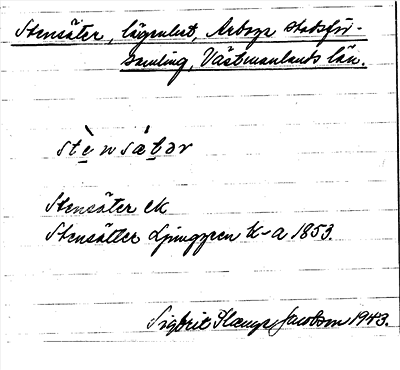 Stensäter, lägenhet, Arboga stadsför-
samling, Västmanlands län.
stè̱nsæt̲ər
Stensäter ek
Stensätter Ljunggren k-a 1853.
Sigbrit Plænge Jacobson 1943.